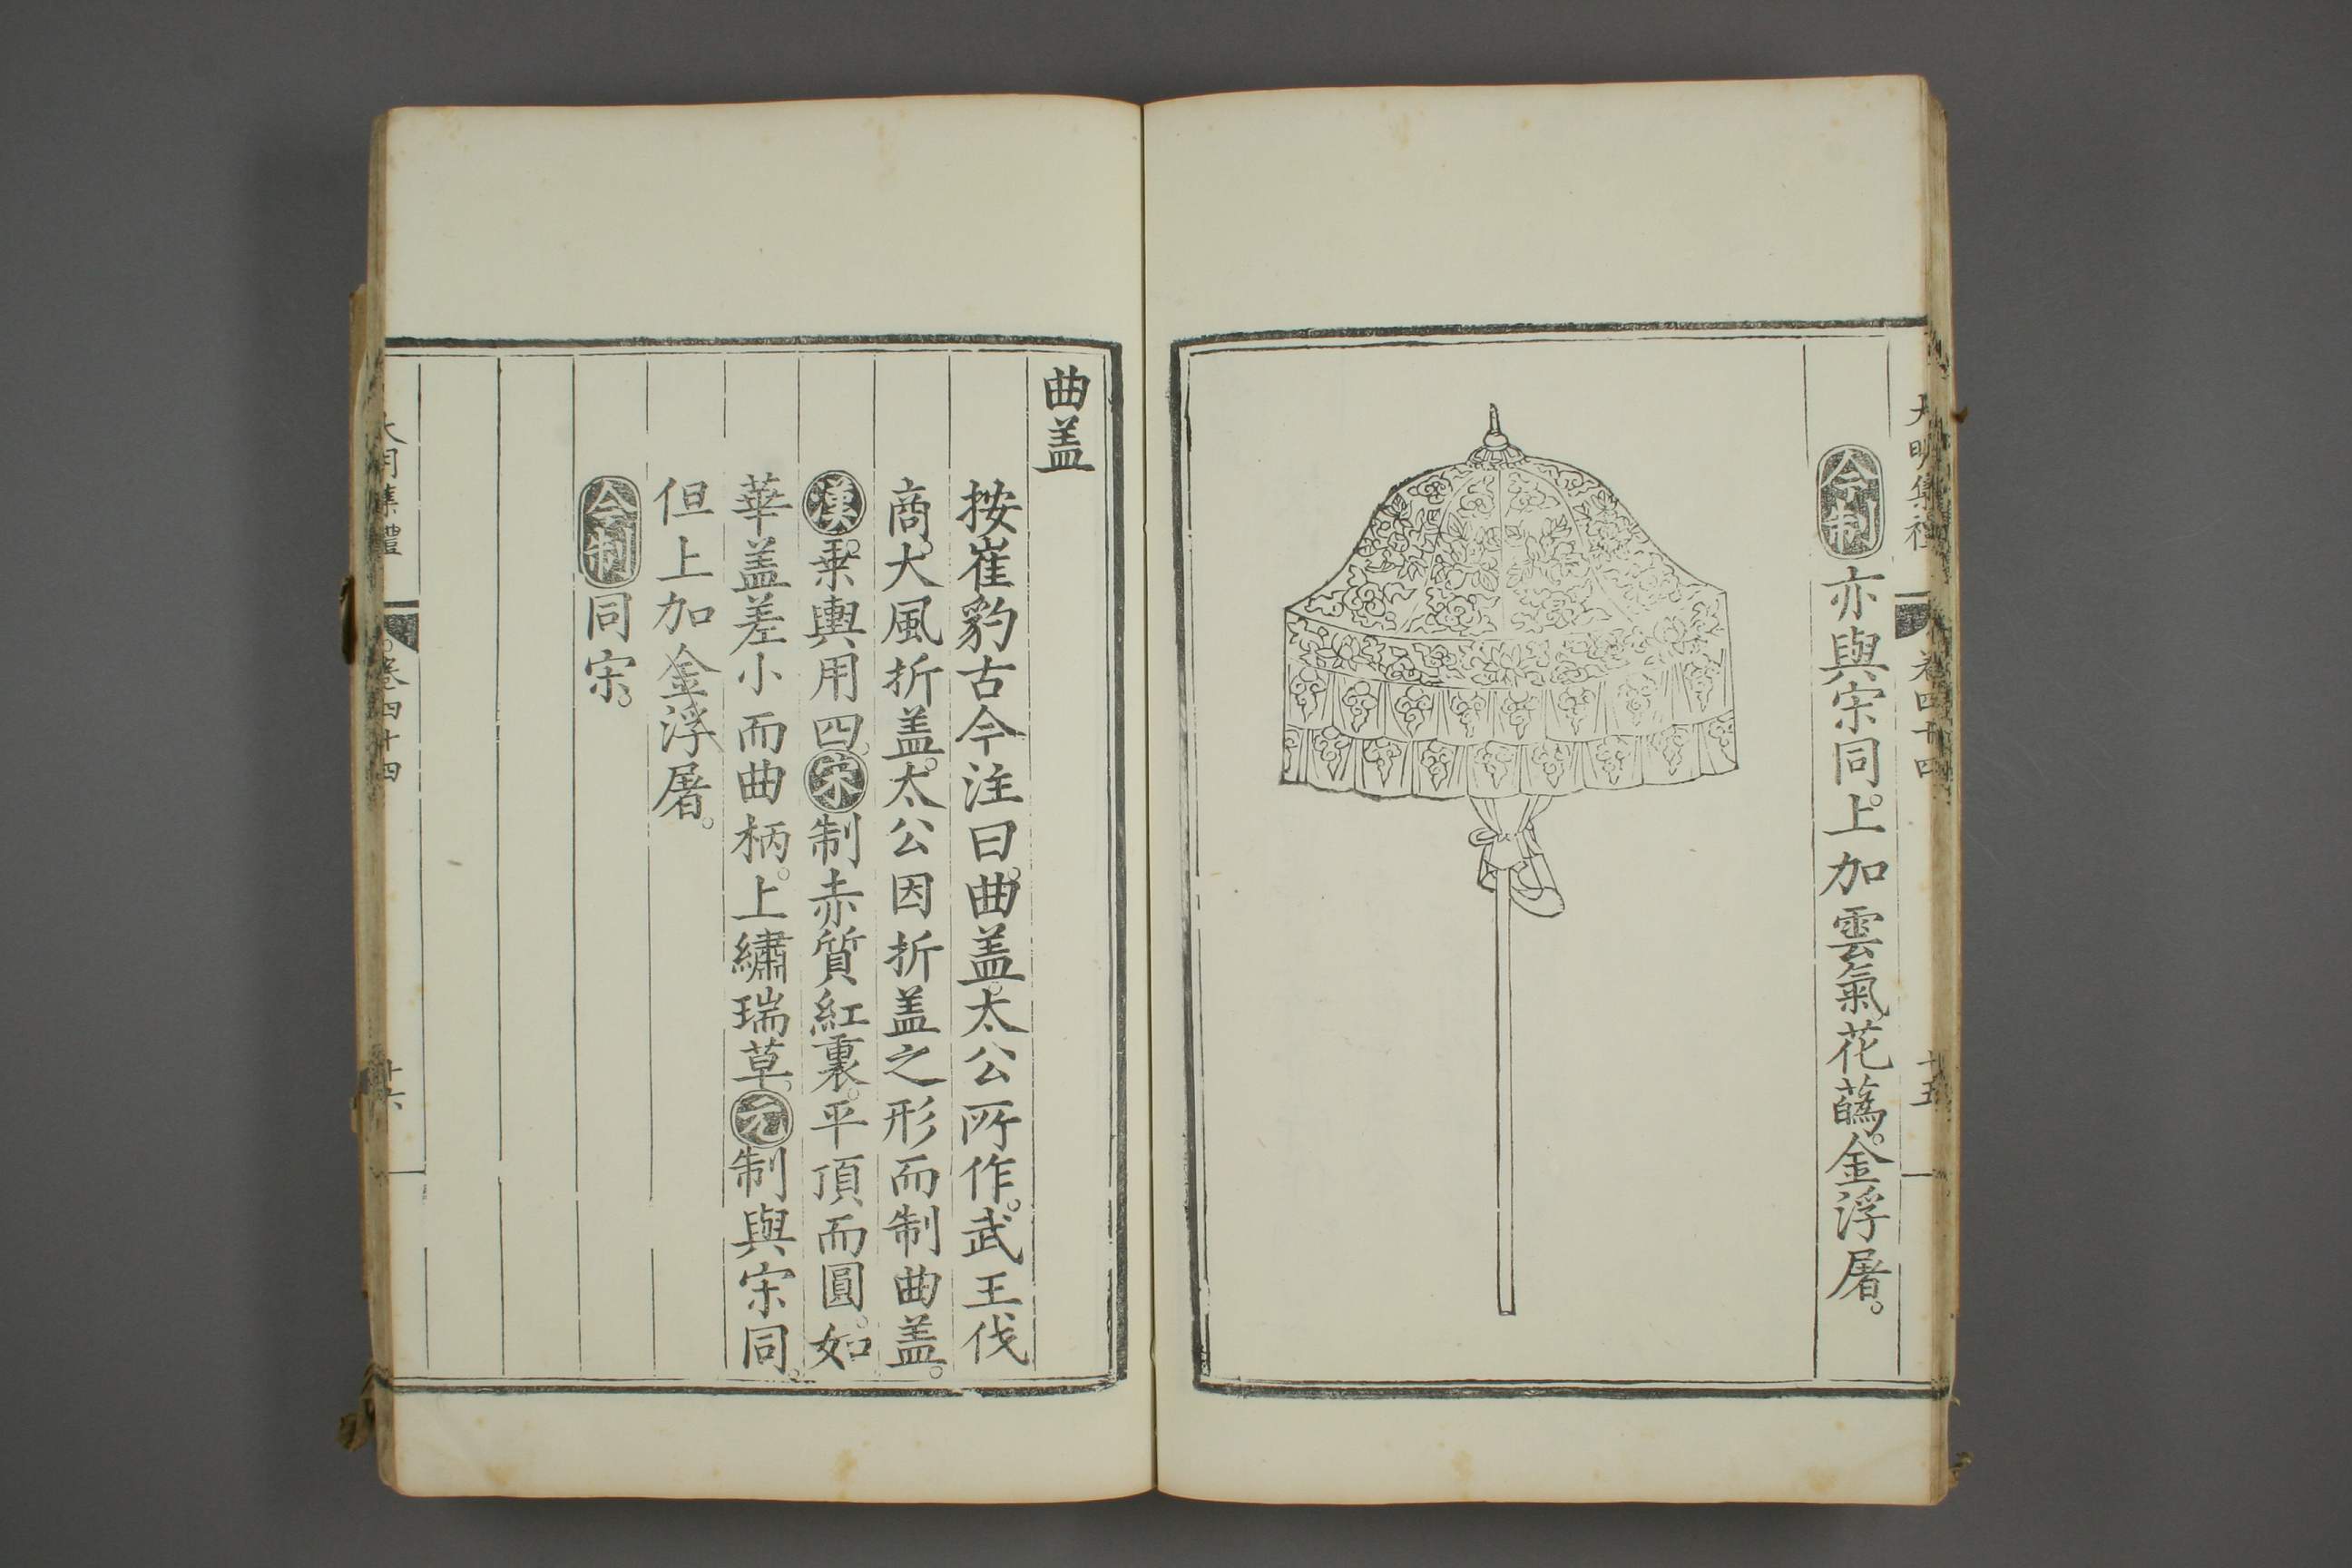 大明集禮 卷四十四 十五
今制亦與宋同。上加雲氣花蘤。金浮屠。
曲盖
按崔豹古今注曰。曲盖。太公所作。武王伐
商。大風折盖。太公因折盖之形而制曲盖。
漢。乗輿用四。宋制赤質紅裏。平頂而圓。如
華盖差小而曲柄。上繡瑞草。元制與宋同。
但上加金浮屠。
今制同宋。
大明集禮 卷四十四 十六